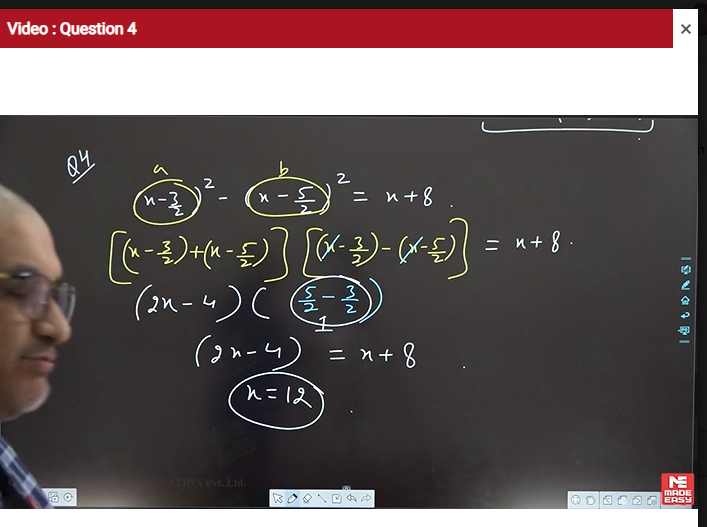 Video : Question 4
×
Q4
a b
(x-3/2)² - (x - 5/2)² = x+8.
[(x-3/2)+(x-5/2)] [(x-3/2)-(x-5/2)] = x+8.
(2x-4) (5/2 - 3/2)
1
(2x-4) = x+8
x=12
Pvt. Ltd.
ME
MADE
EASY